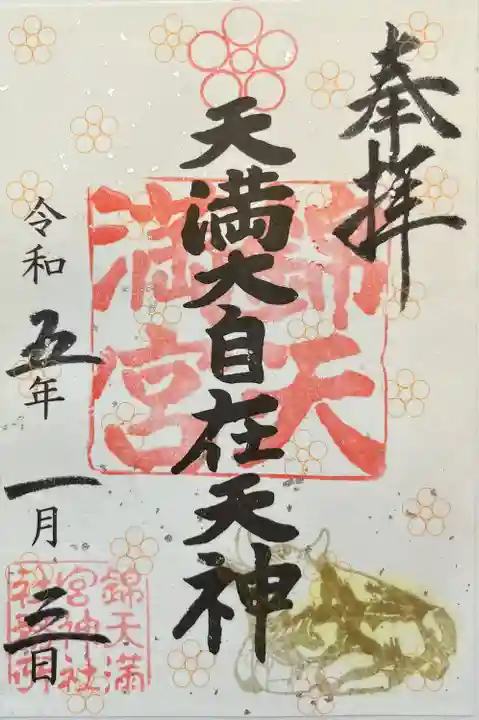 奉拝
天満大自在天神
錦天
満宮
令和五年一月三日
錦天満
宮神社
社務所